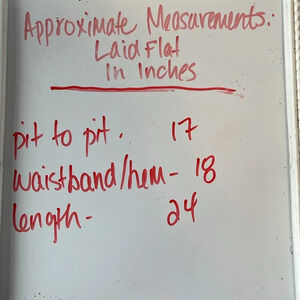 Approximate Measurements:
Laid Flat
In Inches
pit to pit. 17
waistband/hem- 18
length- 24